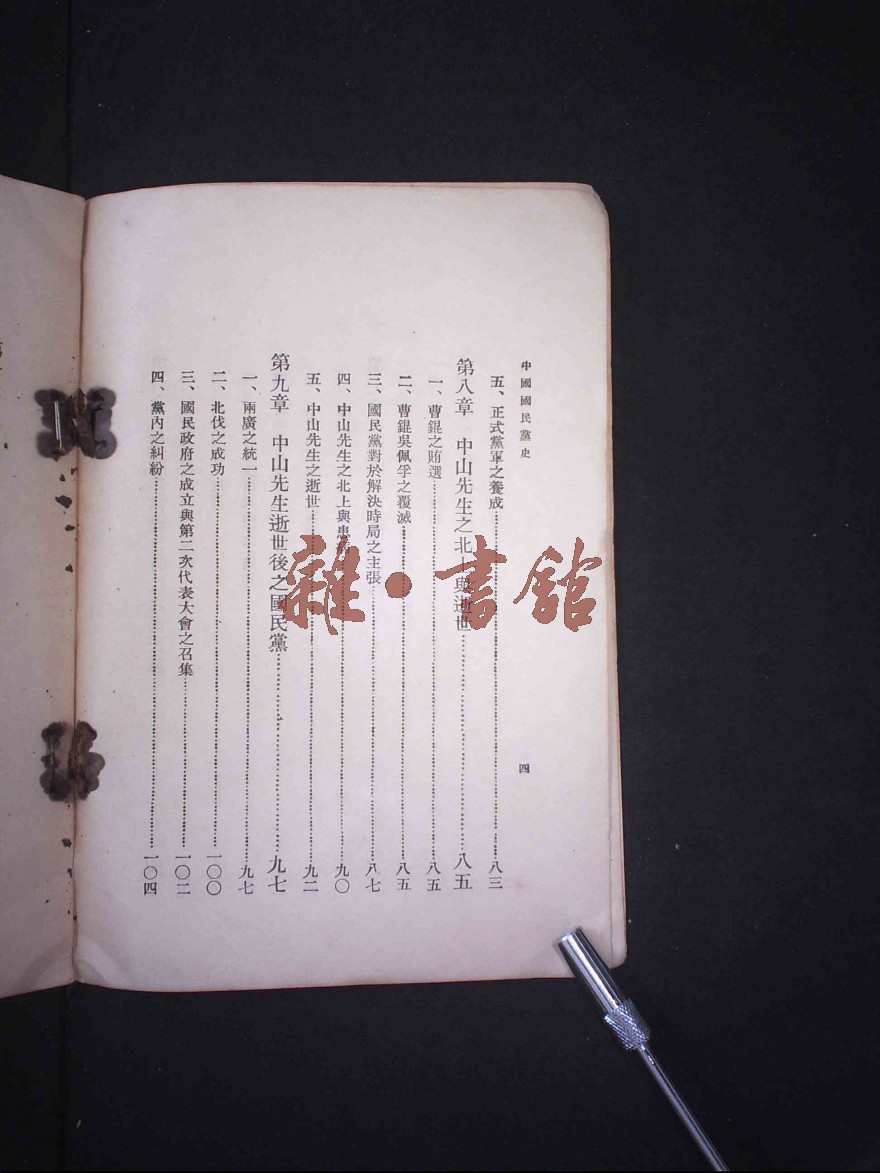 中國國民黨史
四
五、正式黨軍之養成……八三
第八章　中山先生之北上與逝世……八五
一、曹錕之賄選……八五
二、曹錕吳佩孚之覆滅……八五
三、國民黨對於解決時局之主張……八七
四、中山先生之北上與患……九〇
五、中山先生之逝世……九二
第九章　中山先生逝世後之國民黨……九七
一、兩廣之統一……九七
二、北伐之成功……一〇〇
三、國民政府之成立與第二次代表大會之召集……一〇二
四、黨內之糾紛……一〇四
雜·書館